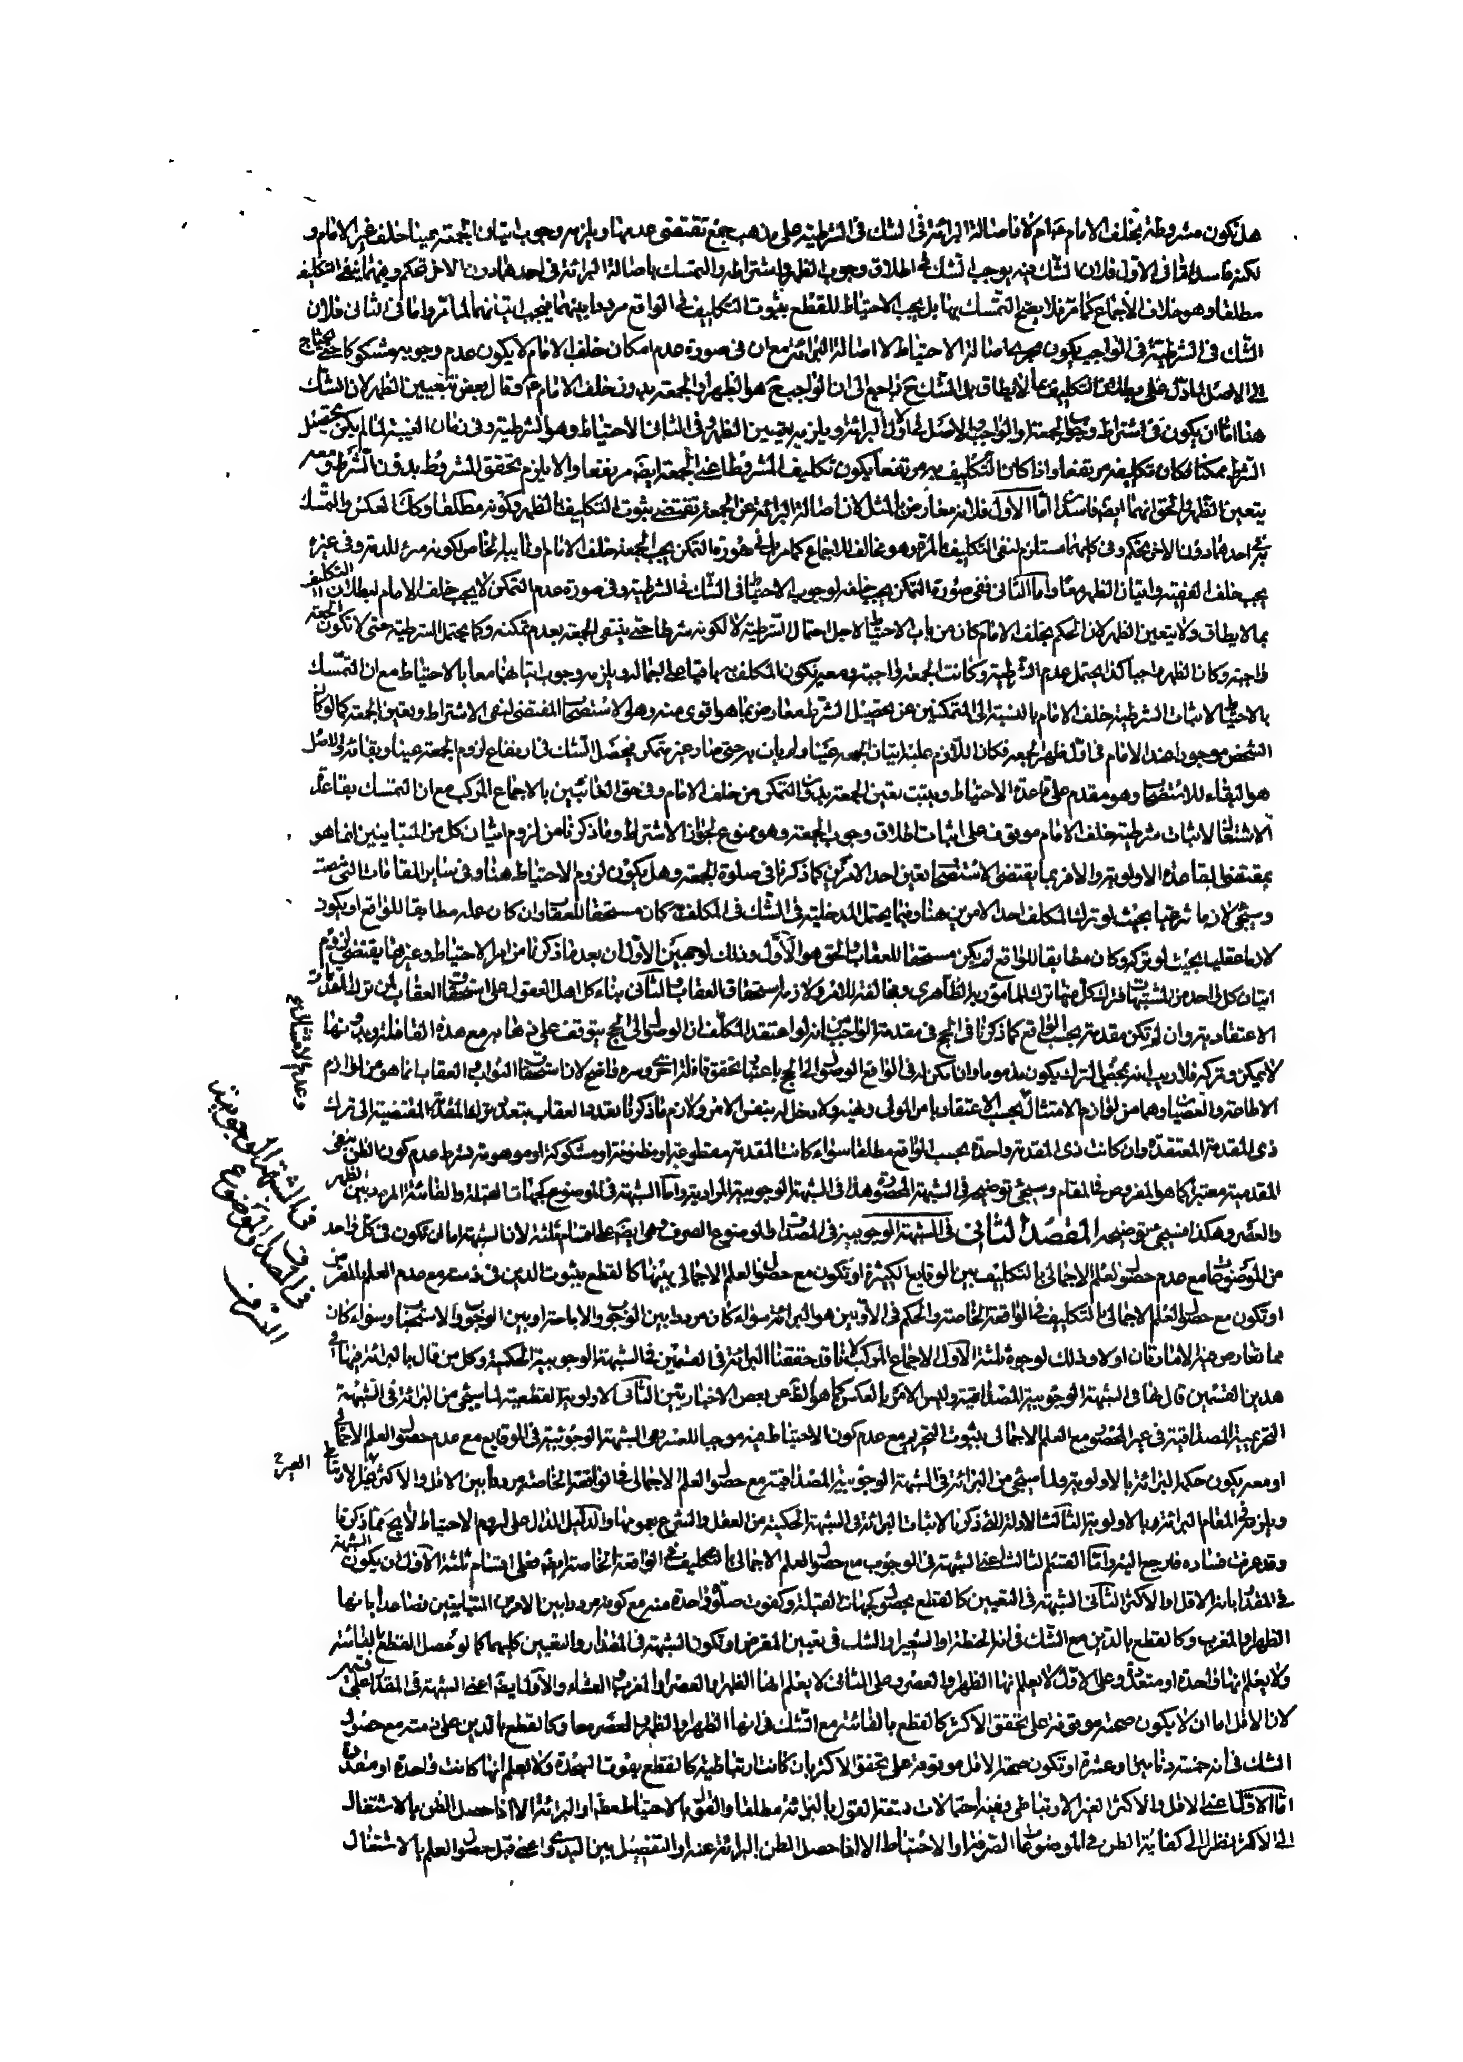 هل تكون مشروطة بخلف الامام ع ام لا فاصالة البرائة فى الشك فى الشرطية على مذهب جمع تقتضى عدمها ويلزمه وجوب اتيان الجمعة عينا خلف غير الامام و
لكنه فاسد اما فى الاول فلان الشك فيه يوجب الشك فى اطلاق وجوب الظهر واشتراطه والتمسك باصالة البرائة فى احدهما دون الاخر تحكم وفيهما ينفى التكليف
مطلقا وهو خلاف الاجماع كما مر فلا يصح التمسك بها بل يجب الاحتياط للقطع بثبوت التكليف فى الواقع مرددا بينهما فيجب اتيانهما لما مر واما فى الثانى فلان
الشك فى الشرطية فى الواجب يكون اصالة الاحتياط لا اصالة البرائة مع ان فى صورة عدم امكان خلف الامام لا يكون عدم وجوبه مشكوكا حتى يحتاج
الى الاصل التكليف بما لا يطاق بل الشك ح راجع الى ان الواجب ح هو الظهر او الجمعة بدون خلف الامام ع وقال بعض بتعيين الظهر لان الشك
هنا اما ان يكون فى اشتراط وجوب الجمعة او الواجب والاصل فى الاول البرائة ويلزمه تعيين الظهر وفى الثانى الاحتياط وهو الشرطية وفى زمان الغيبة لما لم يكن تحصيل
الشرط ممكنا فكان تكليفه مرتفعا واذا كان التكليف به مرتفعا يكون تكليف المشروط اعنى الجمعة ايضا مرتفعا والا يلزم تحقق المشروط بدون الشرط ومعه
يتعين الظهر والحق انهما ايضا فاسد اما الاول فلانه معارض بالمثل لان اصالة البرائة عن الجمعة تقتضى ثبوت التكليف بالظهر وكونه مطلقا وكذا العكس والتمسك
فى احدهما دون الاخر تحكم وفى كليهما مستلزم لنفى التكليف بالمرة وهو مخالف للاجماع كما مر بل فى صورة التمكن يجب الجمعة خلف الامام لكونه مبرئ للذمة وفى غيره
يجب خلف الفقيه واتيان الظهر معا واما الثانى ففى صورة التمكن يجب خلفه لوجوب الاحتياط فى الشك فى الشرطية وفى صورة عدم التمكن لا يجب خلف الامام لبطلان التكليف
بما لا يطاق ولا يتعين الظهر لان الحكم بخلف الامام كان من باب الاحتياط لاجل احتمال الشرطية لا لكونه شرطا حتى ينتفى الجمعة بعدم تمكنه وكما يحتمل الشرطية حتى لا تكون الجمعة
واجبة وكان الظهر واجبا كذا يحتمل عدم الشرطية وكانت الجمعة واجبة ومعه تكون المكلف به باقيا على اجماله ويلزمه وجوب اتيانهما معا بالاحتياط مع ان التمسك
بالاحتياط لاثبات الشرطية خلف الامام بالنسبة الى المتمكنين عن تحصيل الشرط معارض بما هو اقوى منه وهى الاستصحاب المقتضى لنفى الاشتراط وتعين الجمعة كما لو كان
الشخص موجودا عند الامام فى اول ظهر الجمعة فكان اللازم عليه اتيان الجمعة عينا ولم يات به حتى صار غير متمكن فحصل الشك فى ارتفاع لزوم الجمعة عينا وبقائه والاصل
هو البقاء للاستصحاب وهو مقدم على قاعدة الاحتياط ويثبت تعين الجمعة بدون التمكن من خلف الامام وفى حق الغائبين بالاجماع المركب مع ان التمسك بقاعدة
الاشتغال لاثبات شرطية خلف الامام موقوف على اثبات اطلاق وجوب الجمعة وهو ممنوع لجواز الاشتراط وما ذكرنا من لزوم اتيان كل من المتباينين انما هو
بمقتضى القاعدة الاولوية والا فربما يقتضى الاستصحاب تعين احد الامرين كما ذكرنا فى صلوة الجمعة وهل يكون لزوم الاحتياط هنا وفى ساير المقامات التى مضت
وسيجئ لازما شرعيا بحيث لو ترك المكلف احد الامرين هنا وفيما يحتمل المدخلية فى الشك فى المكلف به كان مستحقا للعقاب وان كان عمله مطابقا للواقع او يكون
لازما عقليا بحيث لو تركه وكان مطابقا للواقع لم يكن مستحقا للعقاب والحق هو الاول وذلك لوجهين الاول ان بعد ما ذكرنا من امر الاحتياط وغيرها يقتضى لزوم
اتيان كل واحد من المشتبهات فترك كل منها ترك للمأمور به الظاهرى ومخالفة للامر ولازمه استحقاق العقاب والثانى بناء كل اهل العقول على استحقاق العقاب لمن ترك المقدمات
الاعتقادية وان لم تكن مقدمة بحسب الواقع كما ذكرنا فى الحج فى مقدمة الواجب من انه لو اعتقد المكلف ان الوصول الى الحج يتوقف على ذهابه مع هذه القافلة وبدونها
لا يمكن وتركه فلا ريب انه بمحض الترك يكون مذموما وان تمكن له فى الواقع الوصول الى الحج باعتبار تحقق قافلة اخرى وسره واضح لان استحقاق الثواب والعقاب انما هو من لوازم
الاطاعة والعصيان وهما من لوازم الامتثال بحسب الاعتقاد بامر المولى ونهيه ولا دخل له بنفس الامر ولازم ما ذكرنا تعدد العقاب بتعدد ترك المقدمة المفضية الى ترك
ذى المقدمة المعتقدة وان كانت ذى المقدمة واحدة بحسب الواقع مطلقا سواء كانت المقدمة مقطوعة او مظنونة او مشكوكة او موهومة بشرط عدم كون الظن بنفى
المقدمية معتبرا كما هو المفروض فى المقام وسيجئ توضيحه فى الشبهة المحصورة هذا فى الشبهة الوجوبية المرادية واما الشبهة فى الموضوع كجهات القبلة والفائتة المرددة بين الظهر
والعصر وهكذا فسيجئ توضيحه المقصد الثانى فى الشبهة الوجوبية فى المصداق والموضوع الصرف وهى ايضا على اقسام ثلثة لان الشبهة اما ان تكون فى كل واحد
من الموضوعات مع عدم حصول العلم الاجمالى بالتكليف بين الوقايع الكثيرة او تكون مع حصول العلم الاجمالى بينها كالقطع بثبوت الدين فى ذمته مع عدم العلم بالمقرض
او تكون مع حصول العلم الاجمالى بالتكليف فى الواقعة الخاصة والحكم فى الاولين هو البرائة سواء كان مرددا بين الوجوب والاباحة او بين الوجوب والاستحباب وسواء كان
مما تعارض فيه الامارتان او لا وذلك لوجوه ثلثة الاول الاجماع المركب لانا قد حققنا البرائة فى القسمين فى الشبهة الوجوبية الحكمية وكل من قال بالبرائة فيها فى
هذين القسمين قال بها فى الشبهة الوجوبية المصداقية وليس الامر بالعكس كما هو الظ من بعض الاخباريين الثانى الاولوية القطعية لما سيجئ من البرائة فى الشبهة
التحريمية المصداقية فى غير المحصور مع العلم الاجمالى بثبوت التحريم مع عدم كون الاحتياط فيه موجبا للعسر ففى الشبهة الوجوبية فى الوقايع مع عدم حصول العلم الاجمالى
او معه يكون حكم البرائة بالاولوية ولما سيجئ من البرائة فى الشبهة الوجوبية المصداقية مع حصول العلم الاجمالى فى الواقعة الخاصة مرددا بين الاقل والاكثر الغير الارتباطى
ويلزمه فى المقام البرائة بالاولوية الثالث الادلة التى ذكرنا لاثبات البرائة فى الشبهة الحكمية من العقل والشرع بعمومها والدليل الدال على لزوم الاحتياط لا يجئ مما ذكرنا
وقد عرفت فساده فليرجع اليه واما القسم الثالث اعنى الشبهة فى الوجوب مع حصول العلم الاجمالى بالتكليف فى الواقعة الخاصة ايضا فعلى اقسام ثلثة الاول ان يكون الشبهة
فى المقدار بانه الاقل او الاكثر الثانى الشبهة فى التعيين كالقطع بحصول كجهات القبلة وكفوت صلوة واحدة منه مع كونه مرددا بين الامرين المتباينين فصاعدا بانها
الظهر او المغرب وكالقطع بالدين مع الشك فى انه الحنطة او الشعير او الشك فى تعيين المقرض او تكون الشبهة فى المقدار والتعيين كليهما كما لو حصل القطع بالفائتة
ولا يعلم انها واحدة او متعددة وعلى الاول لا يعلم انها الظهر او العصر وعلى الثانى لا يعلم انها الظهر والعصر او المغرب والعشاء والاول ايضا اعنى الشبهة فى المقدار على قسمين
لان الاقل اما ان لا يكون صحته موقوفة على تحقق الاكثر كالقطع بالفائتة مع الشك فى انها الظهر او الظهر والعصر معا وكالقطع بالدين على ذمته مع حصول
الشك فى انه خمسة دنانير او عشرة او تكون صحة الاقل موقوفة على تحقق الاكثر بان كانت ارتباطية كالقطع بفوت السجدة ولا يعلم انها كانت واحدة او متعددة
اما الاول اعنى الاقل والاكثر الغير الارتباطى ففيه احتمالات ستة القول بالبرائة مطلقا والقول بالاحتياط مطلقا او البرائة الا اذا حصل الظن بالاشتغال
الى الاكثر نظرا الى كفاية الظن فى الموضوعات الصرفة او الاحتياط الا اذا حصل الظن بالبرائة عنه او التفصيل بين البدوى اعنى قبل حصول العلم بالاشتغال
وعدم الاقتضاء ح
فى الشبهة الوجوبية
فى المصداق والموضوع
الصرف
الغير